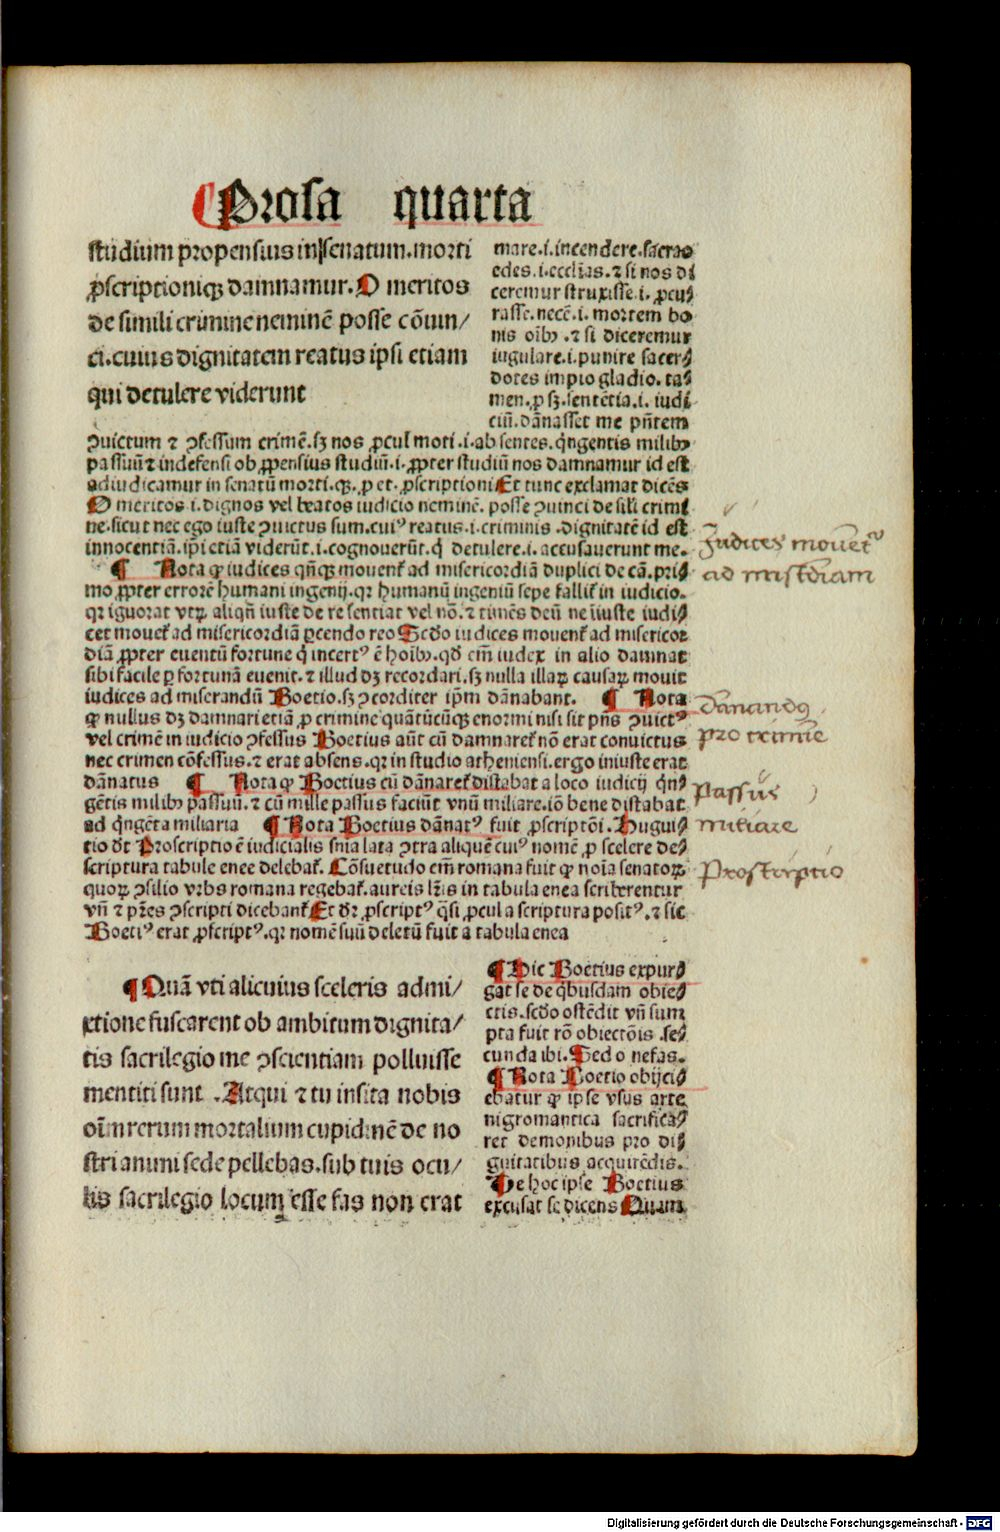 Prosa quarta
studium propensius in senatum.morti
ꝓscriptioniqꝫ damnamur.O meritos
de simili crimine neminē posse cōuin/
ci.cuius dignitatem reatus ipsi etiam
qui detulere viderunt
mare.i.incendere.sacras
edes.i.ecclīas.⁊ si nos di
ceremur struxisse.i.ꝓcuꝛ
rasse.necē.i.mortem bo
nis oībꝰ.⁊ si diceremur
iugulare.i.punire sacer
dotes impio gladio.ta
men.ꝓ sꝫ.sentētia.i.iudi
ciū.dānasset me pn̄tem
ꝯuictum ⁊ ꝯfessum crimē.sꝫ nos ꝓcul moti.i.absentes.qͥngentis milibꝰ
passuū ⁊ indefensi ob ꝓpensius studiū.i.ꝓpter studiū nos damnamur id est
adiudicamur in senatū morti.qꝫ.ꝓ et.ꝓscriptioni Et tunc exclamat dicēs
O meritos i.dignos vel beatos iudicio neminē.posse ꝯuinci de sili crimi
ne.sicut nec ego iuste ꝯuictus sum.cuiꝰ reatus.i.criminis.dignitatē id est
innocentiā.ip̄i etiā viderūt.i.cognouerūt.qͥ detulere.i.accusauerunt me.
¶ Nota ꝙ iudices qn̄qꝫ mouenť ad misericordiā duplici de cā.pri
mo ꝓpter errorē humani ingenij.qꝛ humanū ingeniū sepe fallit̉ in iudicio.
qꝛ ignorat vtꝝ aliqn̄ iuste de re sentiat vel nō.⁊ timēs deū ne iniuste iudi
cet mouet̉ ad misericordiā ꝑcendo reo Scd̄o iudices mouenť ad misericor
diā ꝓpter euentū fortune qͥ incertꝰ ē hoībꝰ.qd̄ em̄ iudex in alio damnat
sibi facile ꝑ fortunā euenit.⁊ illud dꝫ recordari.sꝫ nulla illaꝝ causaꝝ mouit
iudices ad miserandū Boetio.sꝫ ꝯcorditer ip̄m dānabant. ¶ Nota
ꝙ nullus dꝫ damnari etiā ꝓ crimine quātūcūqꝫ enormi nisi sit pn̄s ꝯuictꝰ
vel crimē in iudicio ꝯfessus Boetius aūt cū damnaret̉ nō erat conuictus
nec crimen cōfessus.⁊ erat absens.qꝛ in studio atheniensi.ergo iniuste erat
dānatus ¶ Nota ꝙ Boetius cū dānaret̉ distabat a loco iudicij qͥn
gētis milibꝰ passuū.⁊ cū mille passus faciūt vnū miliare.iō bene distabat
ad qͥngēta miliaria ¶ Nota Boetius dānatꝰ fuit ꝓscriptōi.Hugui
tio dt̄ Proscriptio ē iudicialis snīa lata ꝯtra aliquē cuiꝰ nomē ꝓ scelere de
scriptura tabule enee delebať.Cōsuetudo em̄ romana fuit ꝙ noīa senatoꝝ
quoꝝ ꝯsilio vrbs romana regebať.aureis lr̄is in tabula enea scriberentur
vn̄ ⁊ pr̄es ꝯscripti dicebanť Et dr̄ ꝓscriptꝰ qͣsi ꝓcul a scriptura positꝰ.⁊ sic
Boetiꝰ erat ꝓscriptꝰ.qꝛ nomē suū deletū fuit a tabula enea
Judices mouetͬ
ad mīsc̄diam
Dānandꝰ
pro crimīe
Passuū
miliare
Proscriptio
¶ Quā vti alicuius sceleris admi/
xtione fuscarent ob ambitum dignita/
tis sacrilegio me ꝯscientiam polluisse
mentiti sunt .Atqui ⁊ tu insita nobis
oīm rerum mortalium cupidinē de no
stri animi sede pellebas.sub tuis ocu/
lis sacrilegio locum esse fas non erat
¶ Hic Boetius expur
gat se de qͥbusdam obie
ctis.scd̄o ostēdit vn̄ sum
pta fuit rō obiectōis.se
cunda ibi.Sed o nefas.
¶ Nota Boetio obijci
ebatur ꝙ ipse vsus arte
nigromantica sacrifica
ret demonibus pro di
gnitatibus acquirēdis.
De hoc ipse Boetius
excusat se dicens Quam
Digitalisierung gefördert durch die Deutsche Forschungsgemeinschaft - DFG